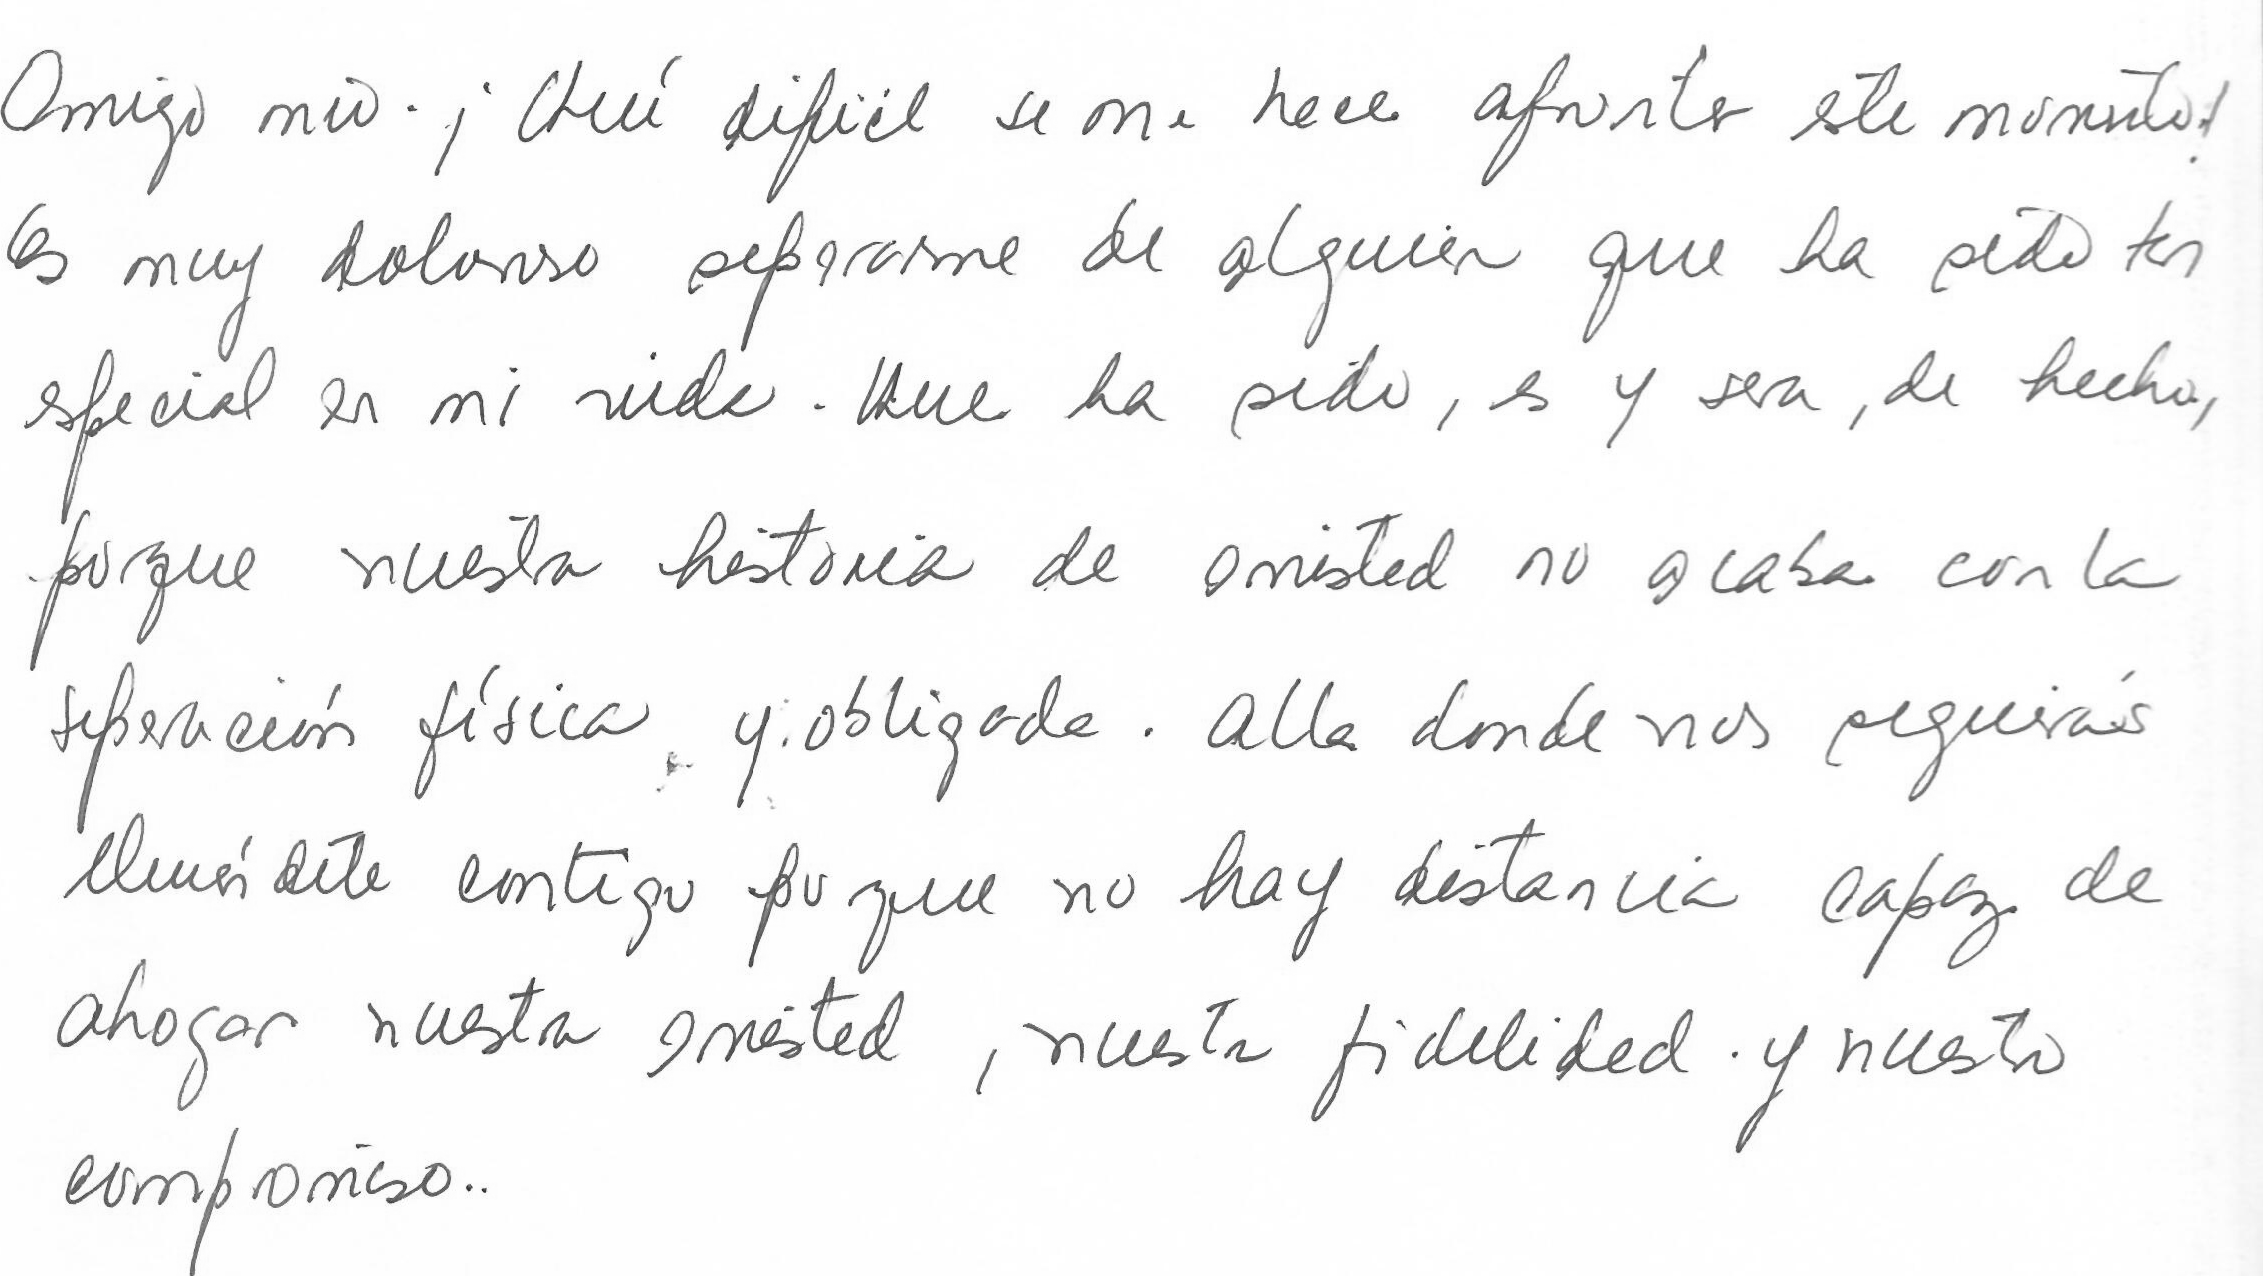 Amigo mio. ¡Qué dificil se me hace afrontar este momento!
Es muy doloroso separarme de alguien que ha sido tan
especial en mi vida. Que ha sido, es y sera, de hecho,
porque nuestra historia de amistad no acaba con la
separación física y obligada. Alla donde nos seguirás
contigo porque no hay distancia capaz de
ahogar nuestra amistad, nuestra fidelidad y nuestro
compromiso..